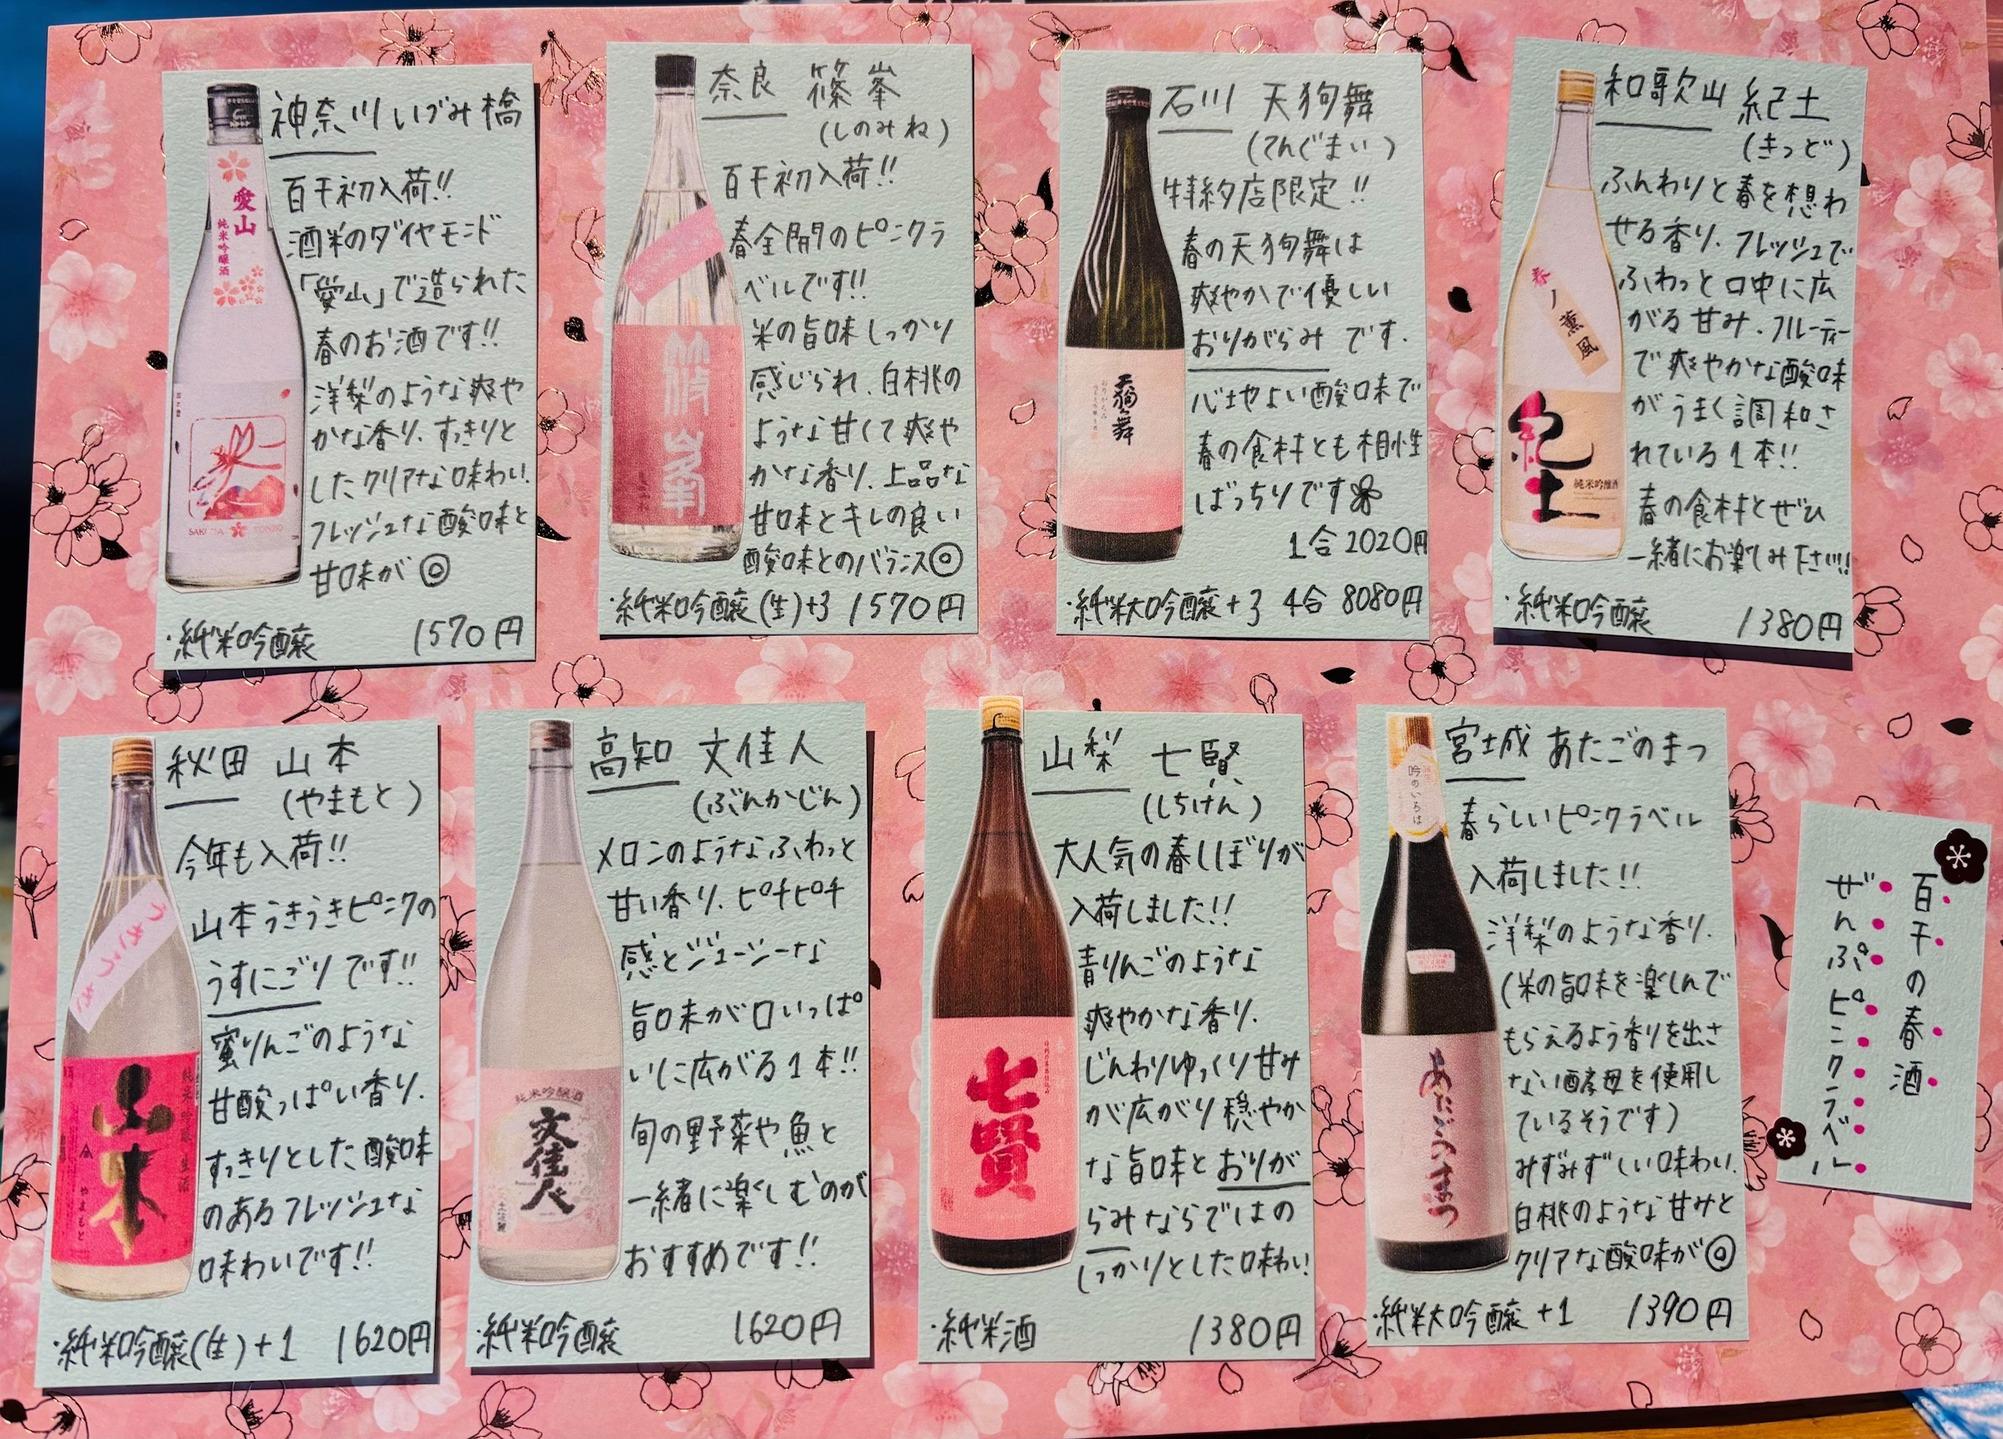 神奈川 いづみ橋
百干初入荷!!
酒米のダイヤモンド
「愛山」で造られた
春のお酒です!!
洋梨のような爽や
かな香り、すっきりと
したクリアな味わい。
フレッシュな酸味と
甘味が◎
・純米吟醸 1570円
愛山
純米吟醸酒
奈良 篠峯
(しのみね)
百干初入荷!!
春全開のピンクラ
ベルです!!
米の旨味しっかり
感じられ、白桃の
ような甘くて爽や
かな香り、上品な
甘味とキレの良い
酸味とのバランス◎
・純米吟醸(生)+3 1570円
篠峯
石川 天狗舞
(てんぐまい)
特約店限定!!
春の天狗舞は
爽やかで優しい
おりがらみ です。
心地よい酸味で
春の食材とも相性
ばっちりです
1合 2020円
・純米大吟醸+3 4合 8080円
天狗舞
和歌山 紀土
(きっど)
ふんわりと春を想わ
せる香り、フレッシュで
ふわっと口中に広
がる甘み、フルーティー
で爽やかな酸味
がうまく調和さ
れている1本!!
春の食材とぜひ
一緒にお楽しみ下さい!!
・純米吟醸 1380円
春ノ薫風
紀土
純米吟醸酒
秋田 山本
(やまもと)
今年も入荷!!
山本うきうきピンクの
うすにごり です!!
蜜りんごのような
甘酸っぱい香り。
すっきりとした酸味
のあるフレッシュな
味わいです!!
・純米吟醸(生)+1 1620円
うきうき
山本
純米吟醸 生酒
やまもと
高知 文佳人
(ぶんかじん)
メロンのようなふわっと
甘い香り、ピチピチ
感とジューシーな
旨味が口いっぱ
いに広がる1本!!
旬の野菜や魚と
一緒に楽しむのが
おすすめです!!
・純米吟醸 1620円
純米吟醸酒
文佳人
山梨 七賢
(しちけん)
大人気の春しぼりが
入荷しました!!
青りんごのような
爽やかな香り。
じんわりゆっくり甘み
が広がり穏やか
な旨味とおりが
らみならではの
しっかりとした味わい
・純米酒 1380円
七賢
宮城 あたごのまつ
春らしいピンクラベル
入荷しました!!
洋梨のような香り。
(米の旨味を楽しんで
もらえるよう香りを出さ
ない酵母を使用し
ているそうです)
みずみずしい味わい。
白桃のような甘みと
クリアな酸味が◎
・純米大吟醸+1 1390円
吟のいろは
あたごのまつ
百干の春酒
ぜんぶピンクラベル